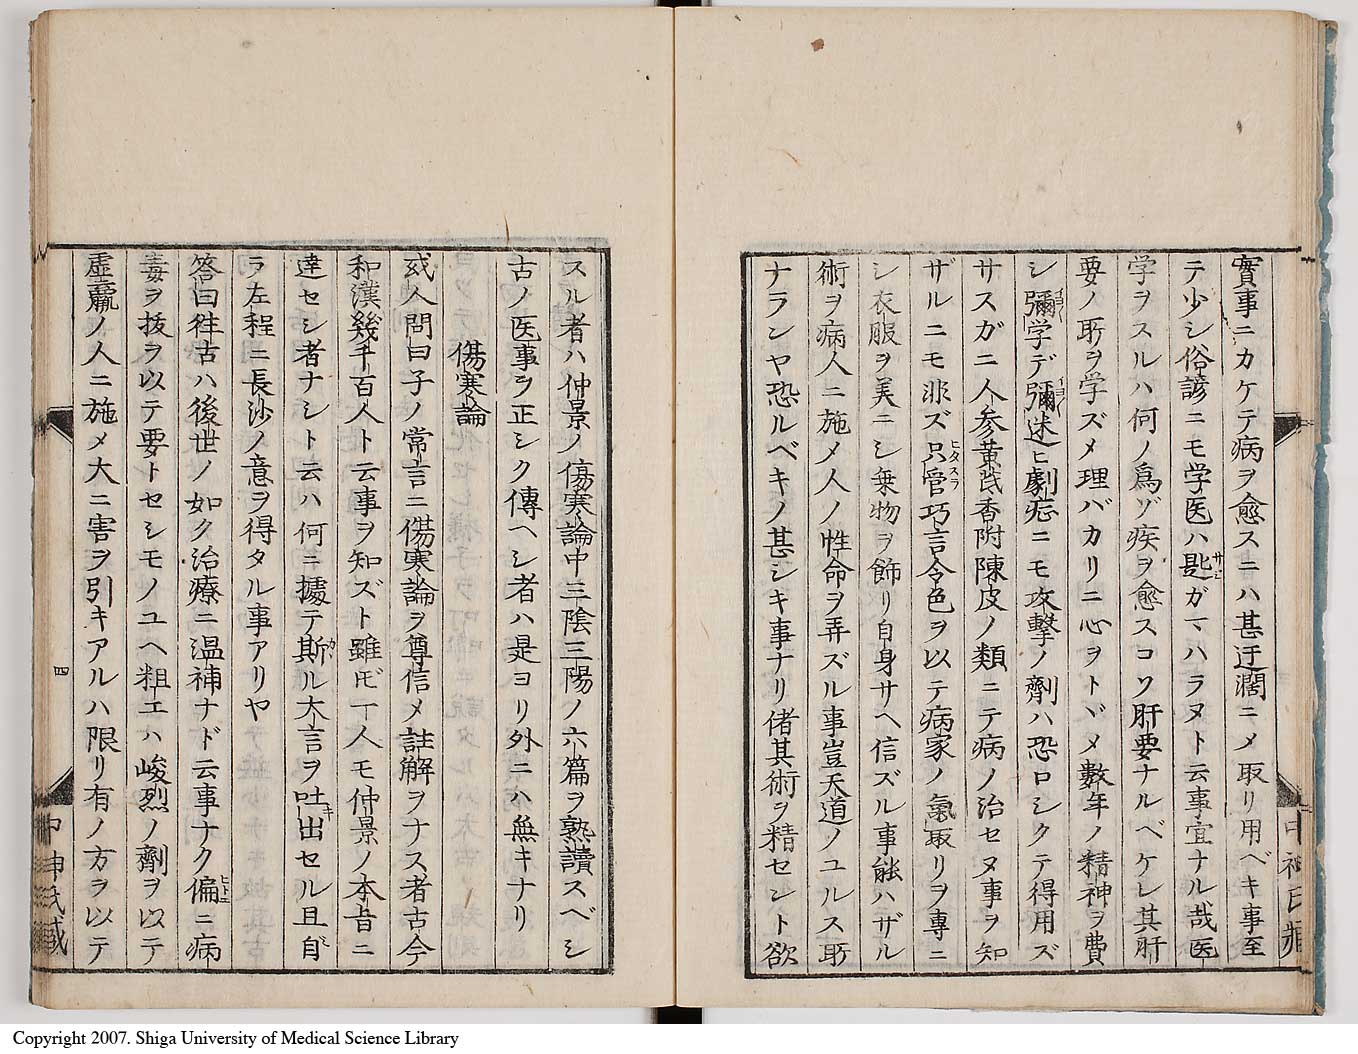 實事ニカケテ病ヲ愈スニハ甚迂濶ニメ取リ用ベキ事至
テ少シ俗諺ニモ学医ハ匙ガマハラヌト云事宜ナル哉医
サヒ
学ヲスルハ何ノ爲ゾ疾ヲ愈スコソ肝要ナルベケレ其肝
要ノ所ヲ学ズメ理バカリニ心ヲトヾメ數年ノ精神ヲ費
シ彌学デ彌迷ヒ劇症ニモ攻擊ノ劑ハ恐ロシクテ得用ズ
サスガニ人参黄芪香附陳皮ノ類ニテ病ノ治セヌ事ヲ知
ザルニモ非ズ只管巧言令色ヲ以テ病家ノ氣取リヲ專ニ
ヒタスラ
シ衣服ヲ美ニシ乗物ヲ飾リ自身サヘ信ズル事能ハザル
術ヲ病人ニ施メ人ノ性命ヲ弄ズル事豈天道ノユルス所
ナランヤ恐ルベキノ甚シキ事ナリ偖其術ヲ精セント欲
スル者ハ仲景ノ傷寒論中三陰三陽ノ六篇ヲ熟讀スベシ
古ノ医事ヲ正シク傳ヘシ者ハ是ヨリ外ニハ無キナリ
傷寒論
或人問曰子ノ常言ニ傷寒論ヲ尊信メ註解ヲナス者古今
和漢幾千百人ト云事ヲ知ズト雖𪜈一人モ仲景ノ本旨ニ
達セシ者ナシト云ハ何ニ據テ斯ル大言ヲ吐出セル且自
カ
キ
ラ左程ニ長沙ノ意ヲ得タル事アリヤ
答曰徃古ハ後世ノ如ク治療ニ温補ナド云事ナク偏ニ病
ヒトヘ
毒ヲ拔ヲ以テ要トセシモノユヘ粗工ハ峻烈ノ劑ヲ以テ
虚羸ノ人ニ施メ大ニ害ヲ引キアルハ限リ有ノ方ヲ以テ
四
中神氏藏
Copyright 2007. Shiga University of Medical Science Library